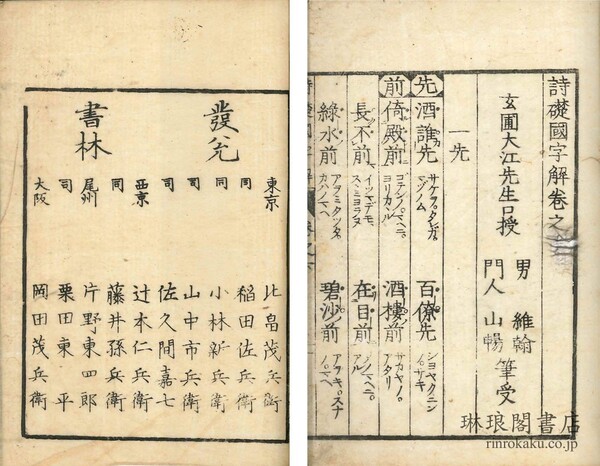 詩礎國字解卷之
玄圃大江先生口授
男 維翰
門人 山暢 筆受
一先
先 酒誰先 サケヲ。タレガ。マヅノム 百僚先 シヨヤクニン
前 倚殿前 ゴテンノ。マヘニ。ヨリカヽル 酒樓前 サカヤノ。アタリ
長不前 イツマデモ。スヽミヨラヌ 在目前
綠水前 碧沙前 アヲキ。スナノ。マヘ
發兌
書林
東京 北畠茂兵衛
同 稲田佐兵衛
同 小林新兵衛
同 山中市兵衛
同 佐久間嘉七
西京 辻本仁兵衛
同 藤井孫兵衛
尾州 片野東四郎
同 栗田東平
大阪 岡田茂兵衛
琳琅閣書店
rinrokaku.co.jp